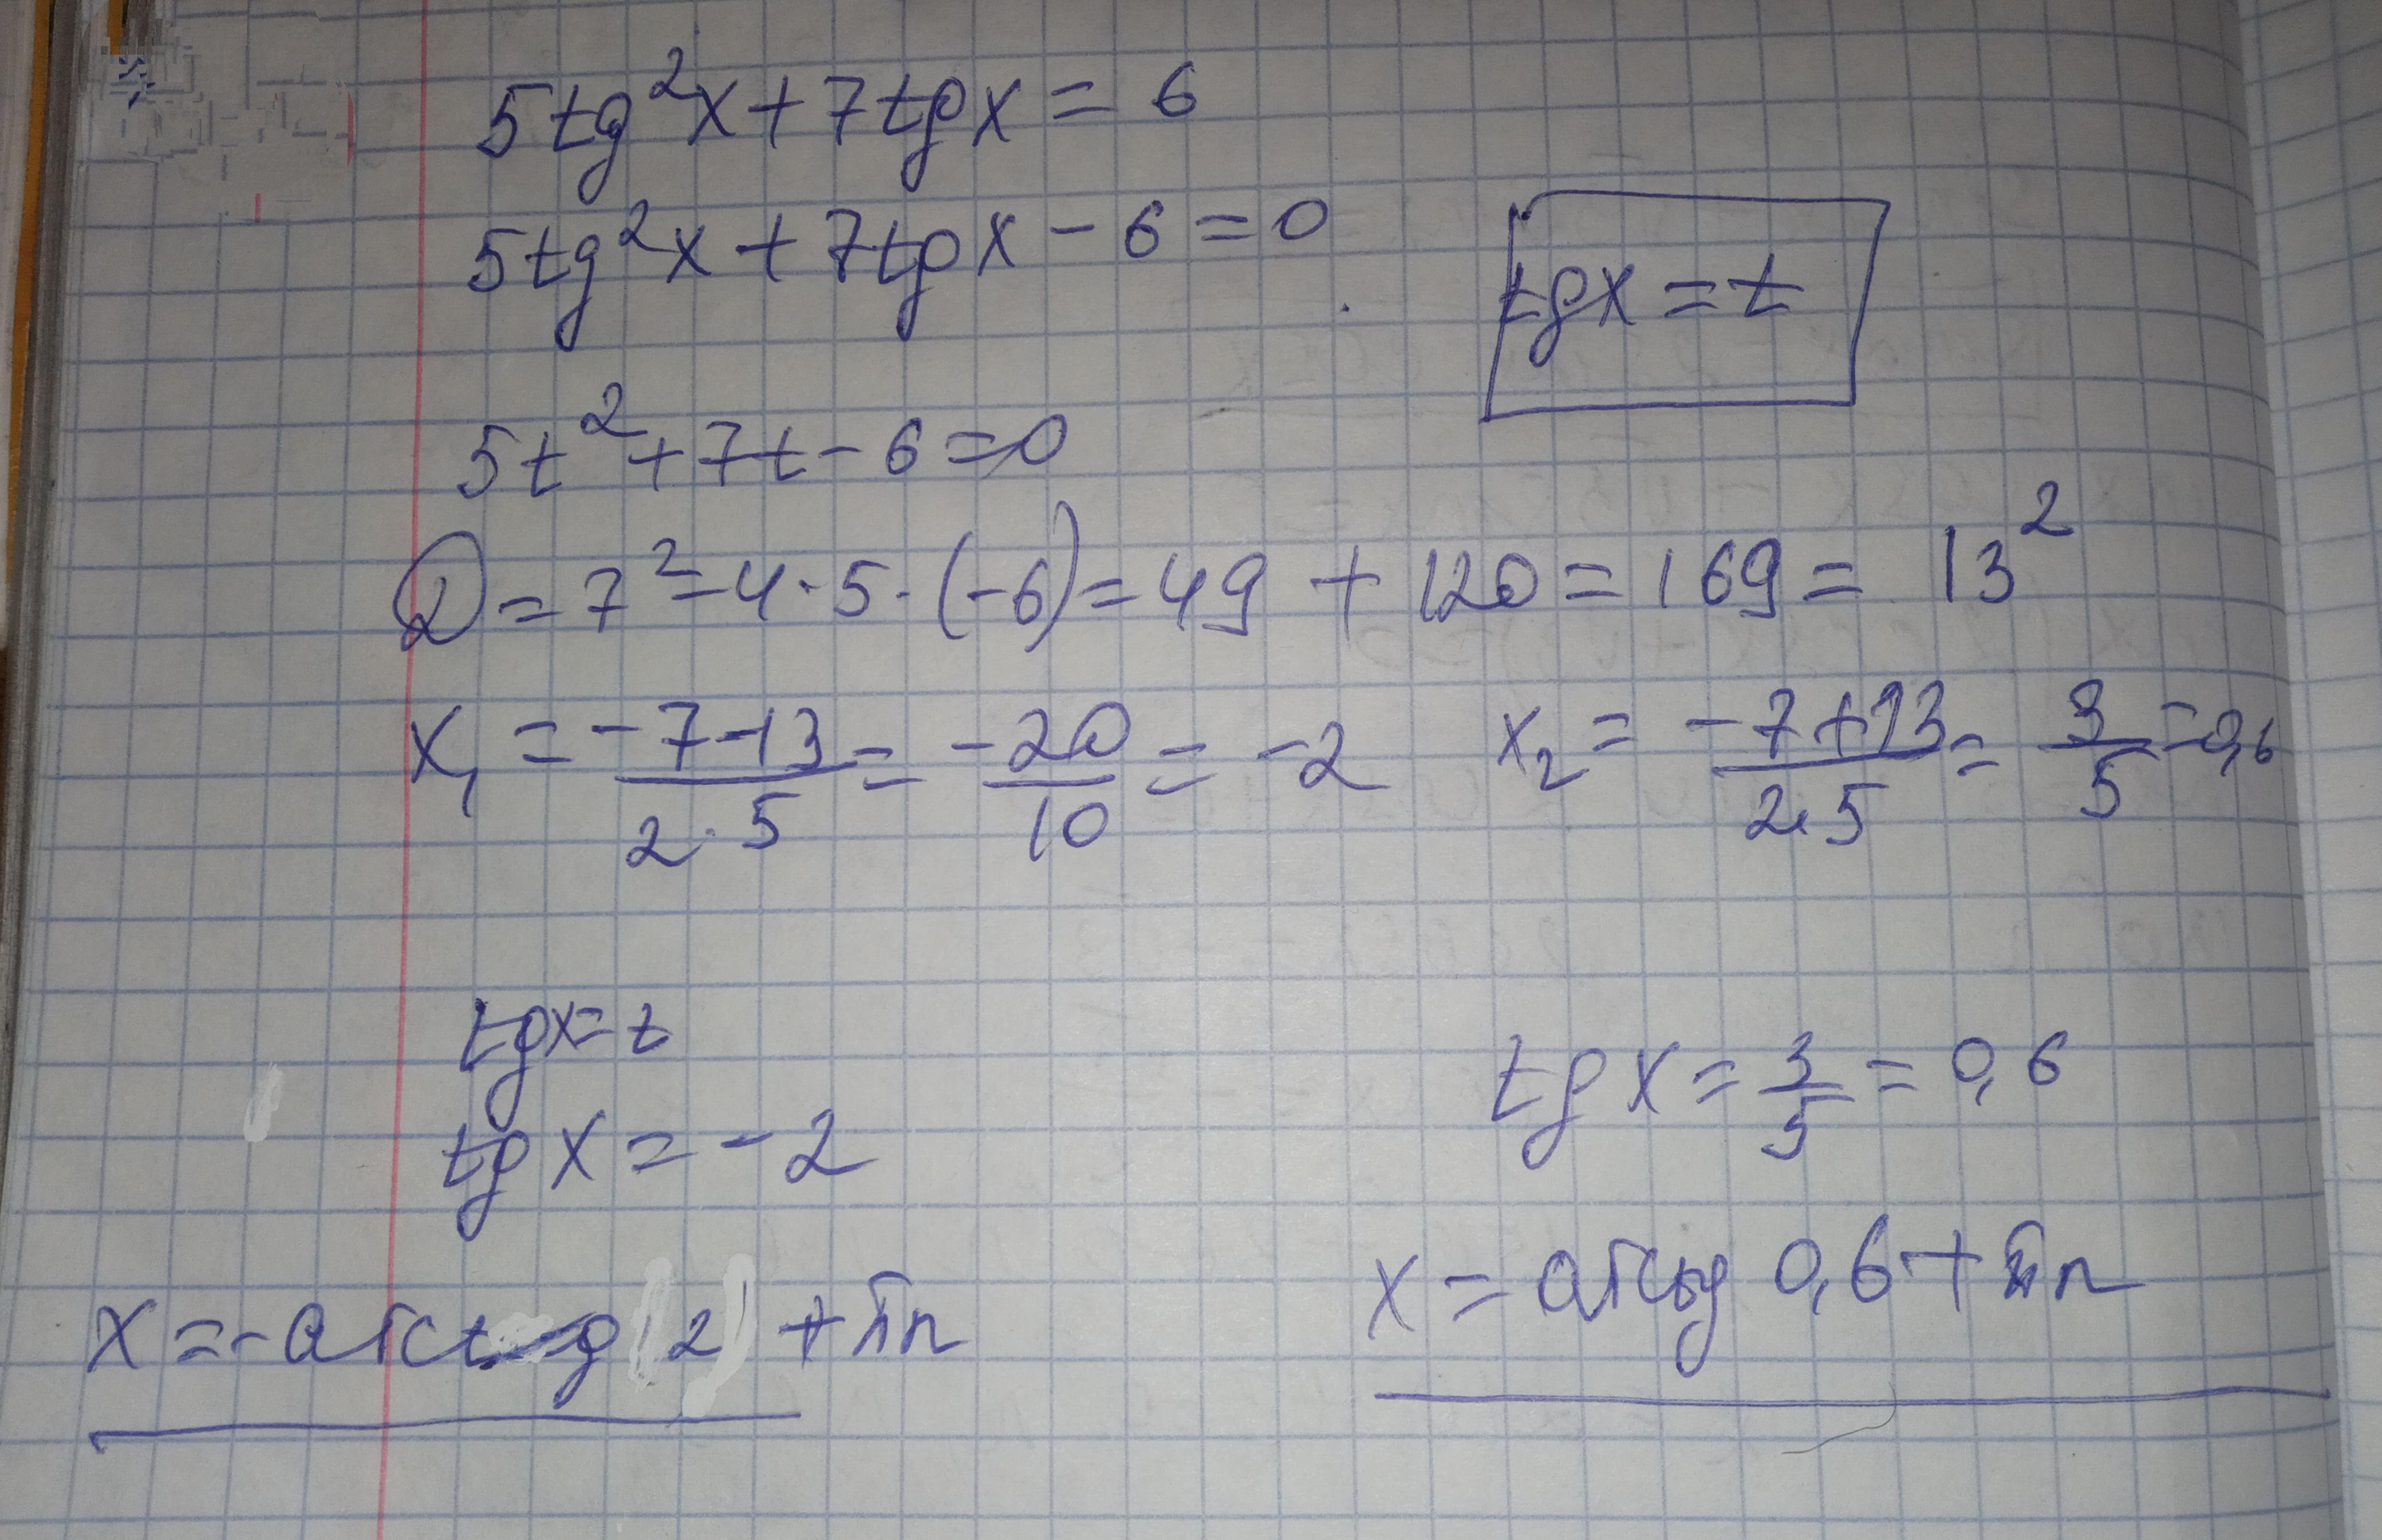 5tg²x + 7tgx = 6
5tg²x + 7tgx - 6 = 0
tgx = t
5t² + 7t - 6 = 0
D = 7² - 4 · 5 · (-6) = 49 + 120 = 169 = 13²
x₁ = (-7-13)/(2·5) = -20/10 = -2 x₂ = (-7+13)/(2·5) = 3/5 = 0,6
tgx = t
tgx = -2
tgx = 3/5 = 0,6
x = -arctg 2 + πn
x = arctg 0,6 + πn